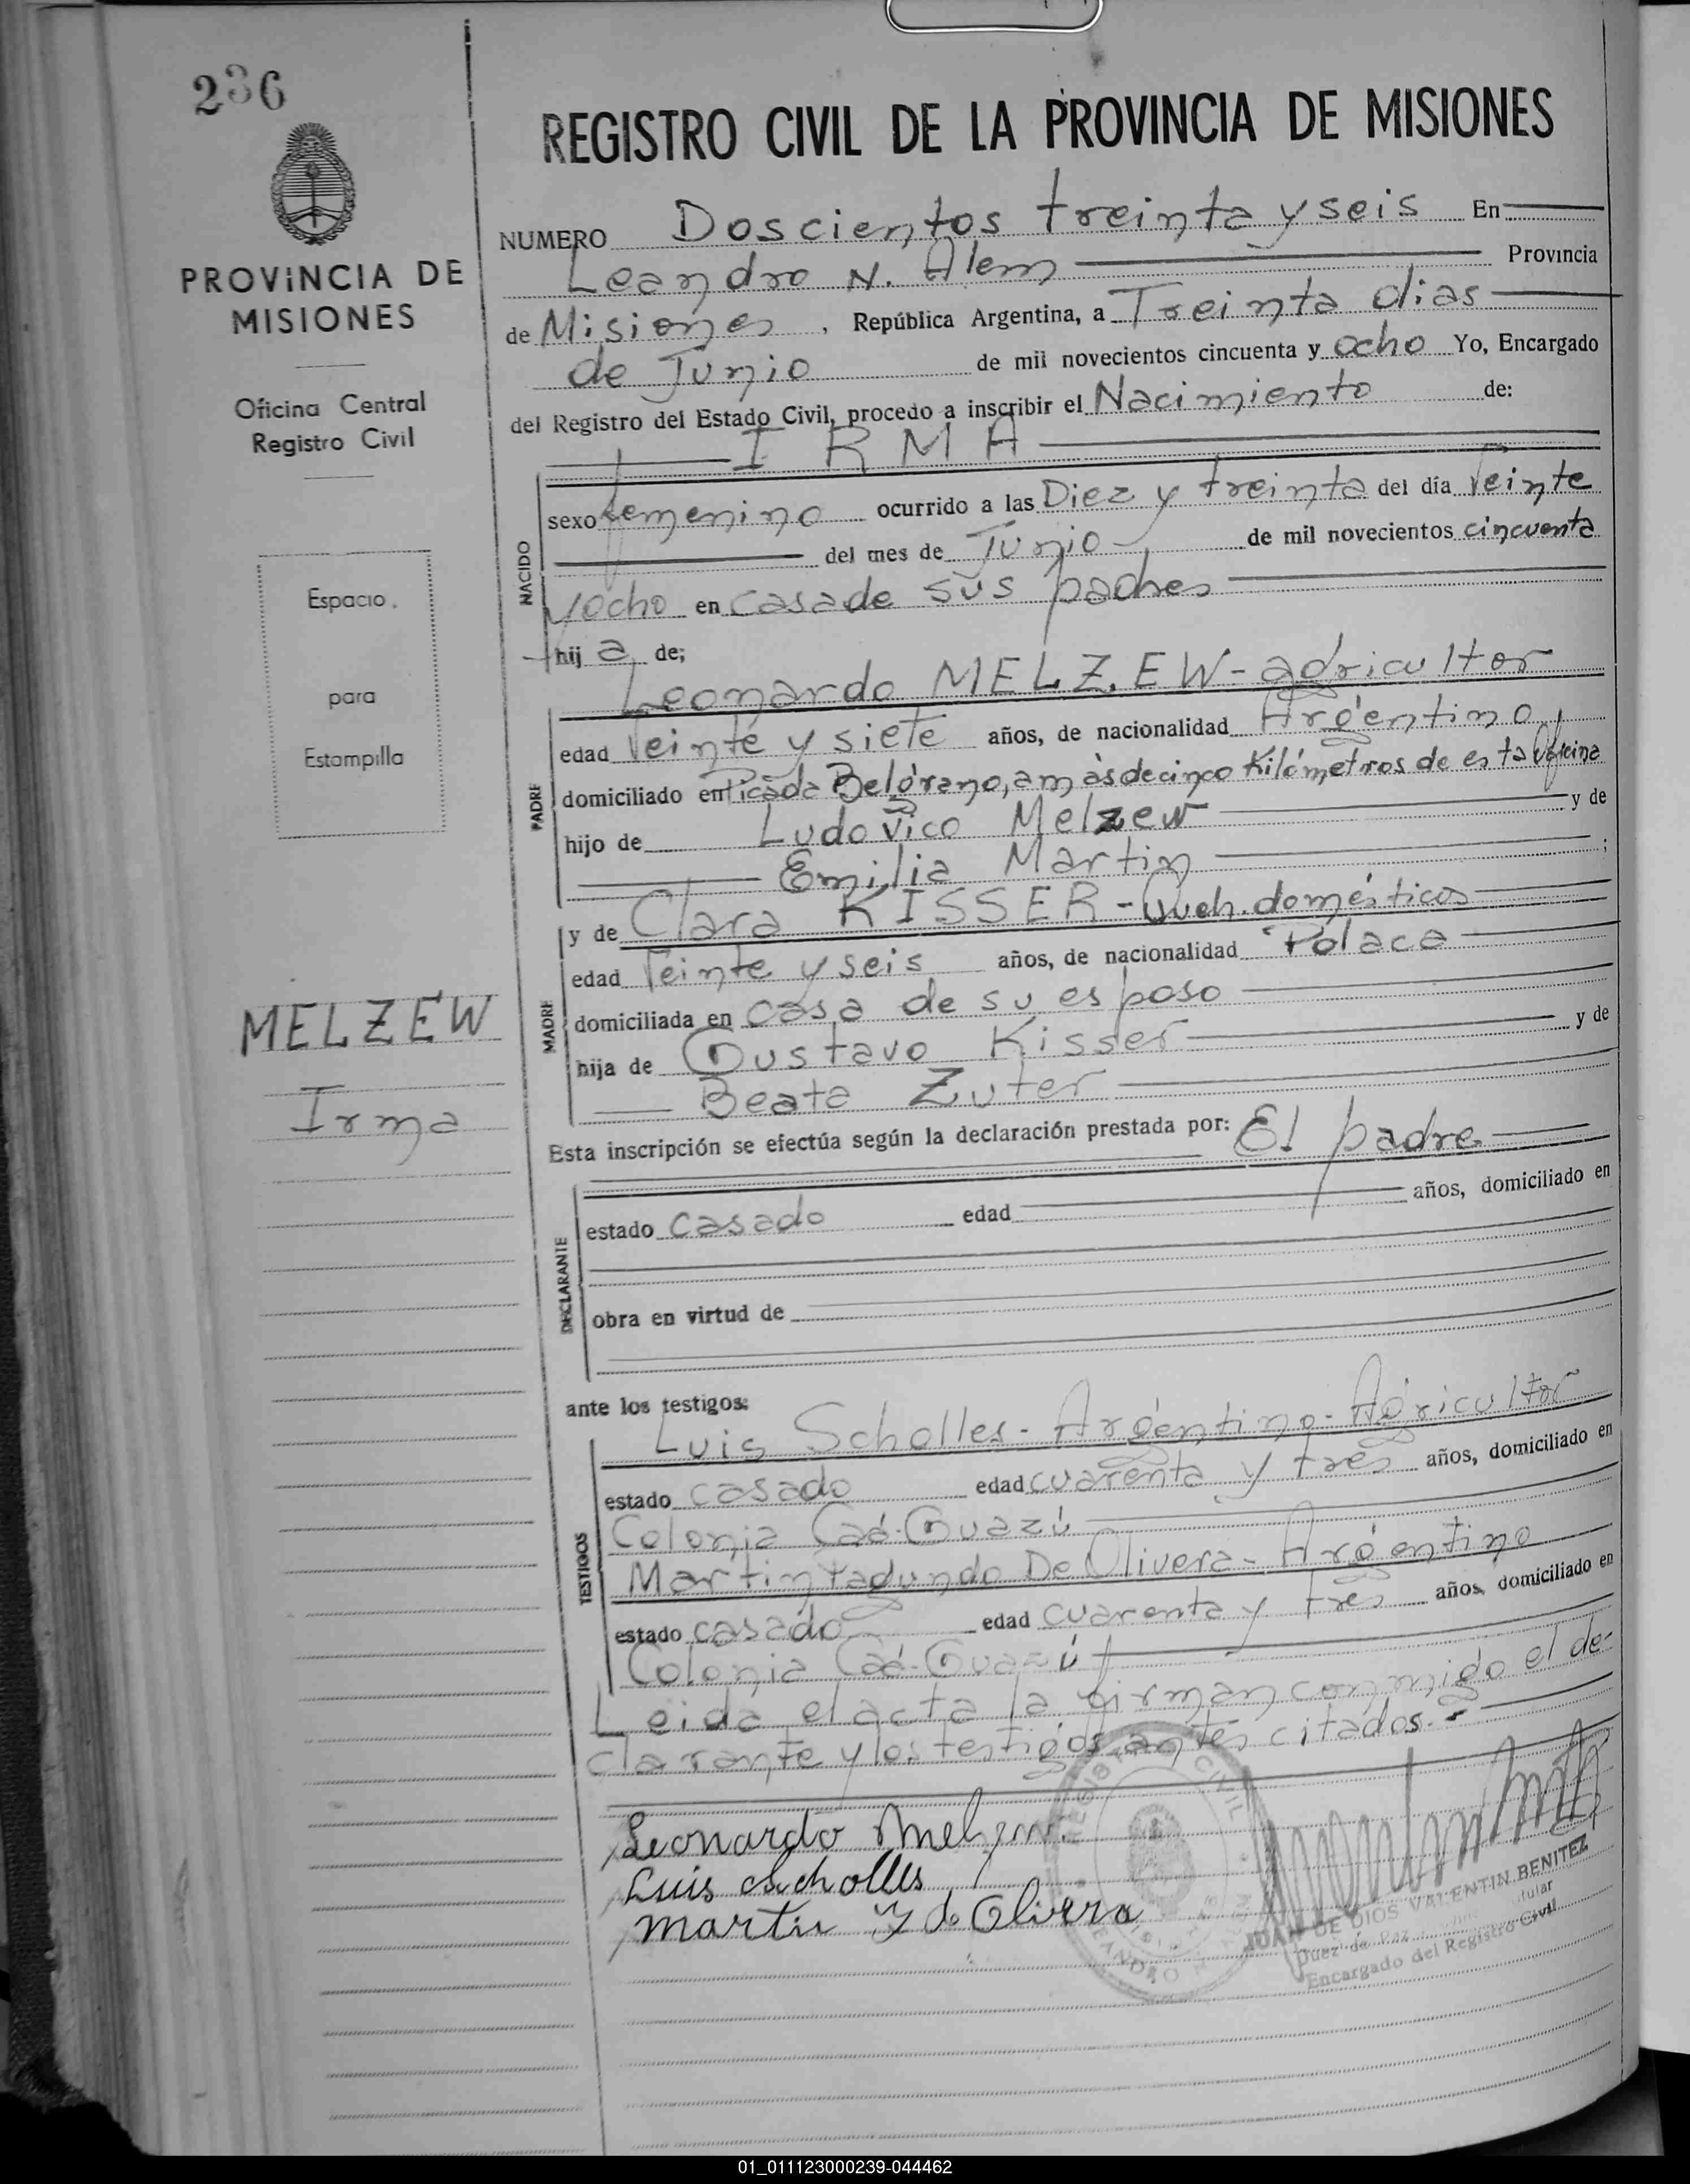 236
PROVINCIA DE
MISIONES
Oficina Central
Registro Civil
Espacio
para
Estampilla
MELZEW
Irma
REGISTRO CIVIL DE LA PROVINCIA DE MISIONES
NUMERO Doscientos treinta y seis En
Leandro N. Alem Provincia
de Misiones, República Argentina, a Treinta dias
de Junio de mil novecientos cincuenta y ocho Yo, Encargado
del Registro del Estado Civil, procedo a inscribir el Nacimiento de:
IRMA
NACIDO
sexo femenino ocurrido a las Diez y treinta del día Veinte
del mes de Junio de mil novecientos cincuenta
y ocho en casa de sus padres
hij a de;
Leonardo MELZEW - agricultor
PADRE
edad Veinte y siete años, de nacionalidad Argentino
domiciliado en Picada Belgrano, a más de cinco Kilómetros de esta Oficina
hijo de Ludovico Melzew y de
Emilia Martin ;
y de Clara KISSER - Queh. domésticos
MADRE
edad Veinte y seis años, de nacionalidad Polaca
domiciliada en casa de su esposo
hija de Gustavo Kisser y de
Beata Zuter
Esta inscripción se efectúa según la declaración prestada por: El padre
DECLARANTE
estado casado edad años, domiciliado en
obra en virtud de
ante los testigos:
Luis Scholles - Argentino - Agricultor
TESTIGOS
estado casado edad cuarenta y tres años, domiciliado en
Colonia Caá-Guazú
Martin De Olivera - Argentino
estado casado edad cuarenta y tres años, domiciliado en
Colonia Caá-Guazú
Leida el acta la firman conmigo el de-
clarante y los testigos antes citados.-
Leonardo Melzew
Luis Scholles
Martin Y d. Olivera
REGISTRO CIVIL
LEANDRO N.
JUAN DE DIOS VALENTIN BENITEZ
Juez de Paz Titular
Encargado del Registro Civil
01_011123000239-044462